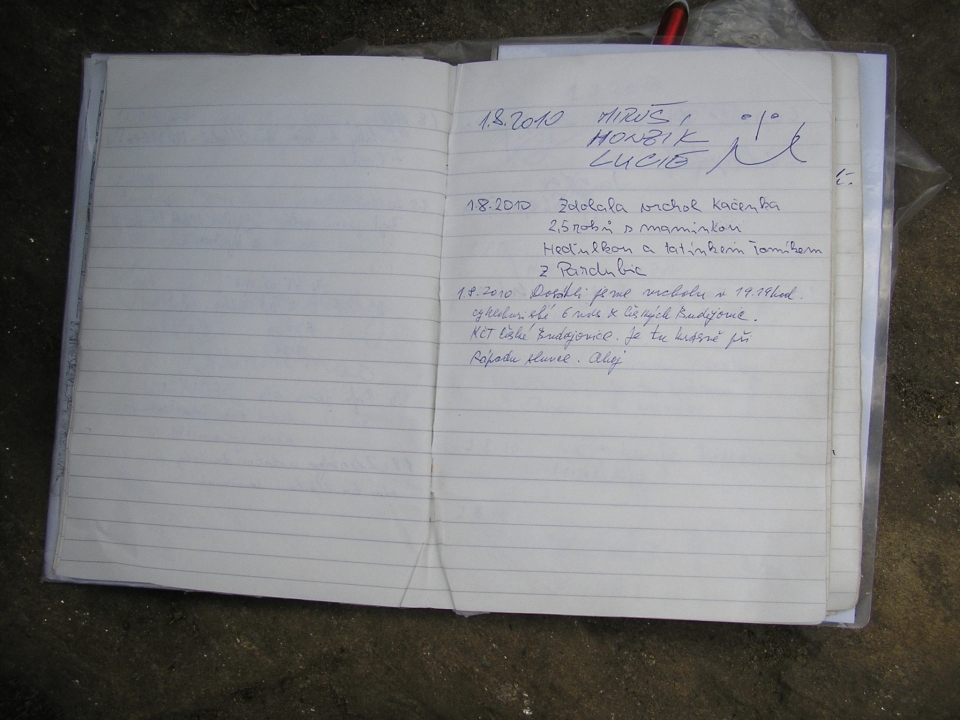 1.8.2010 MIRUŠ,
HONZIK
LUCIE
1.8.2010 Zdolala vrchol Kačenka
2,5 roků s maminkou
Hedvikou a tatínkem Tomíkem
z Pardubic
1.8.2010 Dosáhli jsme vrcholu v 19.19 hod.
z Českých Budějovic.
KČT České Budějovice. Je tu krásně při
západu slunce. Ahoj